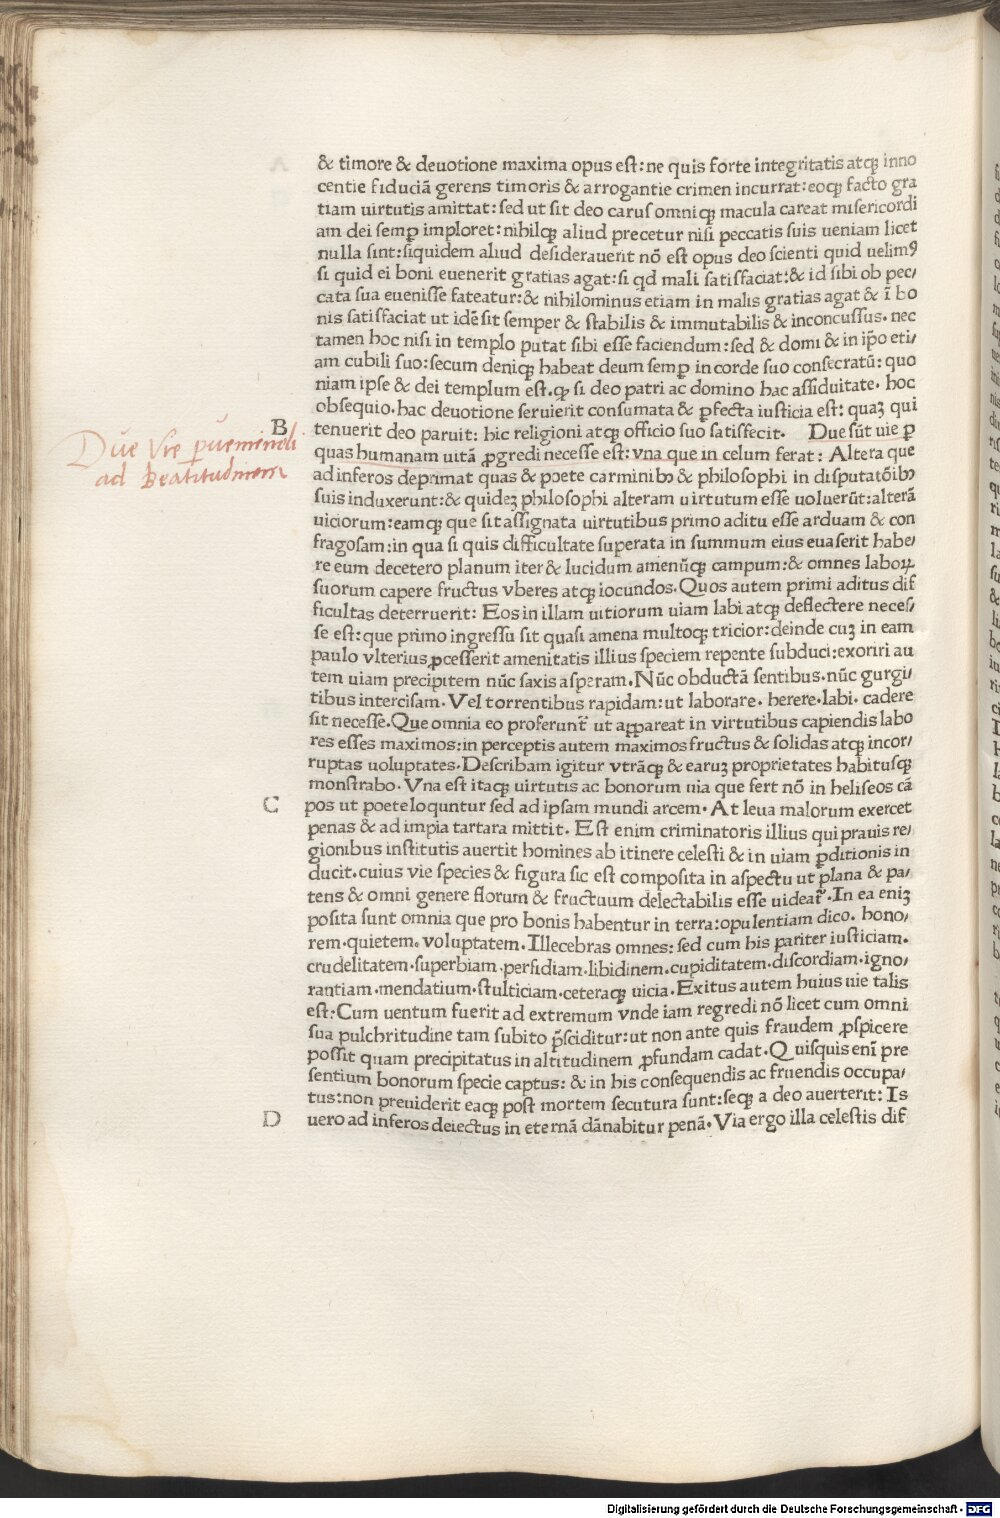 & timore & deuotione maxima opus est: ne quis forte integritatis atqꝫ inno
centie fiduciā gerens timoris & arrogantie crimen incurrat: eoqꝫ facto gra
tiam uirtutis amittat: sed ut sit deo carus omniqꝫ macula careat misericordi
am dei semꝑ imploret: nihilqꝫ aliud precetur nisi peccatis suis ueniam licet
nulla sint: siquidem aliud desiderauerit nō est opus deo scienti quid uelimꝰ
si quid ei boni euenerit gratias agat: si qd mali satisfaciat: & id sibi ob pec/
cata sua euenisse fateatur: & nihilominus etiam in malis gratias agat & ī bo
nis satisfaciat ut idē sit semper & stabilis & immutabilis & inconcussus. nec
tamen hoc nisi in templo putat sibi esse faciendum: sed & domi & in ip̄o eti/
am cubili suo: secum deniqꝫ habeat deum semꝑ in corde suo consecratū: quo
niam ipse & dei templum est. ꝙ si deo patri ac domino hac assiduitate. hoc
obsequio. hac deuotione seruierit consumata & ꝑfecta iusticia est: quaꝫ qui
B tenuerit deo paruit: hic religioni atqꝫ officio suo satisfecit. Due sūt uie ꝑ
Due Vie perueniendi
ad Beatitudinem
quas humanam uitā ꝓgredi necesse est: vna que in celum ferat: Altera que
ad inferos deprimat quas & poete carminibꝫ & philosophi in disputatōibꝫ
suis induxerunt: & quideꝫ philosophi alteram uirtutum esse uoluerūt: alterā
uiciorum: eamqꝫ que sit assignata uirtutibus primo aditu esse arduam & con
fragosam: in qua si quis difficultate superata in summum eius euaserit habe/
re eum decetero planum iter & lucidum amenūqꝫ campum: & omnes laboꝝ
suorum capere fructus vberes atqꝫ iocundos. Quos autem primi aditus dif
ficultas deterruerit: Eos in illam uitiorum uiam labi atqꝫ deflectere neces/
se est: que primo ingressu sit quasi amena multoqꝫ tricior: deinde cuꝫ in eam
paulo vlterius ꝓcesserit amenitatis illius speciem repente subduci: exoriri au
tem uiam precipitem nūc saxis asperam. Nūc obductā sentibus. nūc gurgi/
tibus intercisam. Vel torrentibus rapidam: ut laborare. herere. labi. cadere
sit necesse. Que omnia eo proferunt̄ ut appareat in virtutibus capiendis labo
res esses maximos: in perceptis autem maximos fructus & solidas atqꝫ incor/
ruptas uoluptates. Describam igitur vtrāqꝫ & earuꝫ proprietates habitusqꝫ
monstrabo. Vna est itaqꝫ uirtutis ac bonorum uia que fert nō in heliseos cā
C pos ut poete loquntur sed ad ipsam mundi arcem. At leua malorum exercet
penas & ad impia tartara mittit. Est enim criminatoris illius qui prauis re/
gionibus institutis auertit homines ab itinere celesti & in uiam ꝑditionis in
ducit. cuius vie species & figura sic est composita in aspectu ut plana & pa/
tens & omni genere florum & fructuum delectabilis esse uideat̄. In ea eniꝫ
posita sunt omnia que pro bonis habentur in terra: opulentiam dico. hono/
rem. quietem. voluptatem. Illecebras omnes: sed cum his pariter iusticiam.
crudelitatem. superbiam. perfidiam. libidinem. cupiditatem. discordiam. igno/
rantiam. mendatium. stulticiam. ceteraqꝫ uicia. Exitus autem huius uie talis
est: Cum uentum fuerit ad extremum vnde iam regredi nō licet cum omni
sua pulchritudine tam subito p̄sciditur: ut non ante quis fraudem ꝓspicere
possit quam precipitatus in altitudinem ꝓfundam cadat. Quisquis enī pre
sentium bonorum specie captus: & in his consequendis ac fruendis occupa/
tus: non preuiderit eaqꝫ post mortem secutura sunt: seqꝫ a deo auerterit: Is
D uero ad inferos deiectus in eternā dānabitur penā. Via ergo illa celestis dif
Digitalisierung gefördert durch die Deutsche Forschungsgemeinschaft - DFG